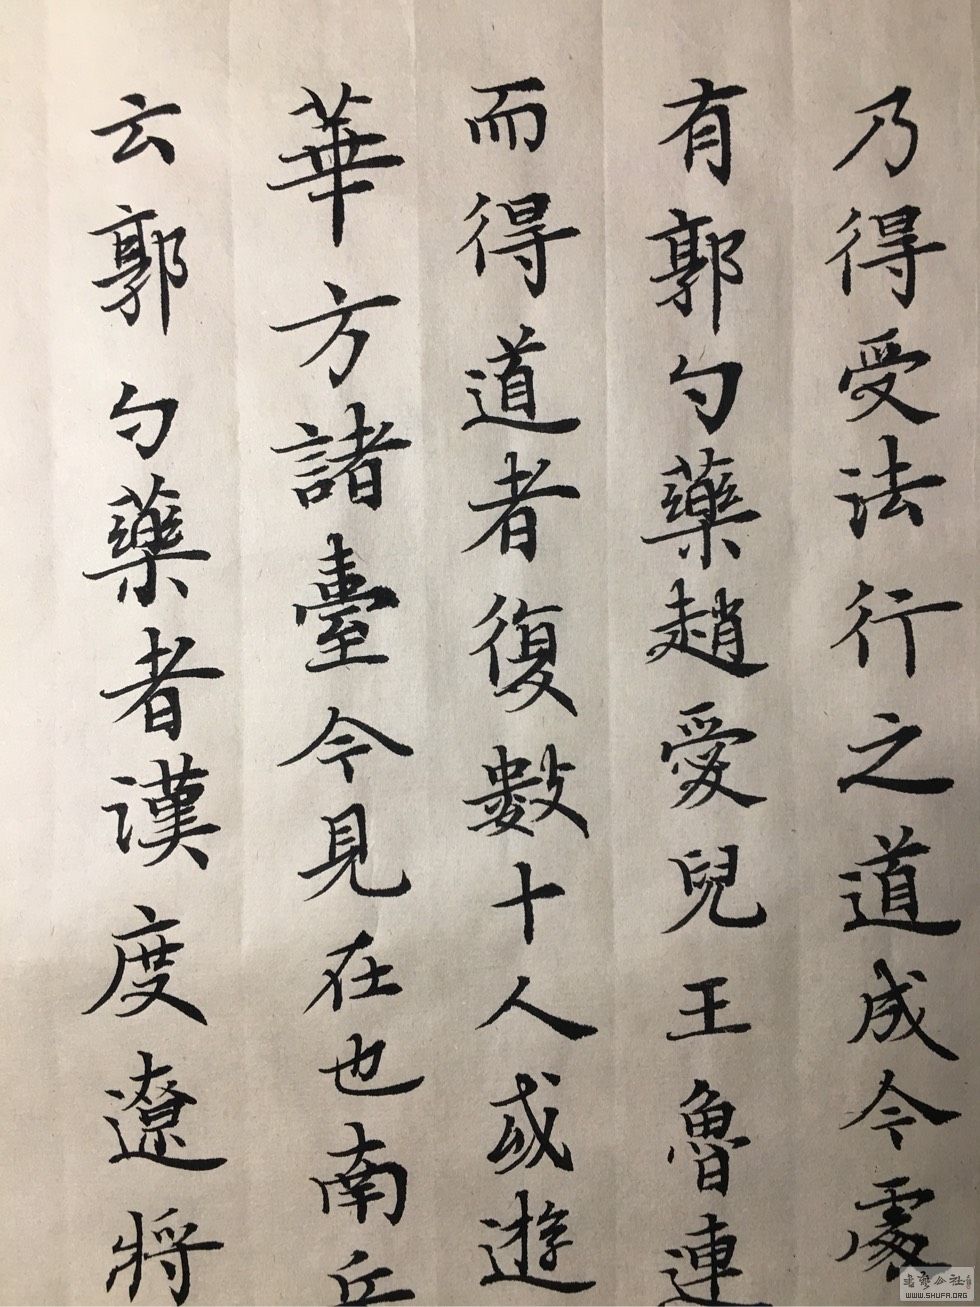 乃得受法行之道成今處
有郭勺藥趙愛兒王魯連
而得道者復數十人或遊
華方諸臺今見在也南丘
云郭勺藥者漢度遼將
書藝公社
WWW.SHUFA.ORG